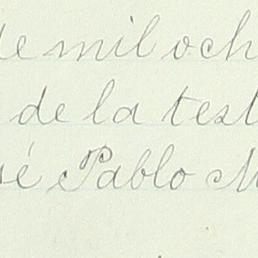 de mil och
de la test
sé Pablo M